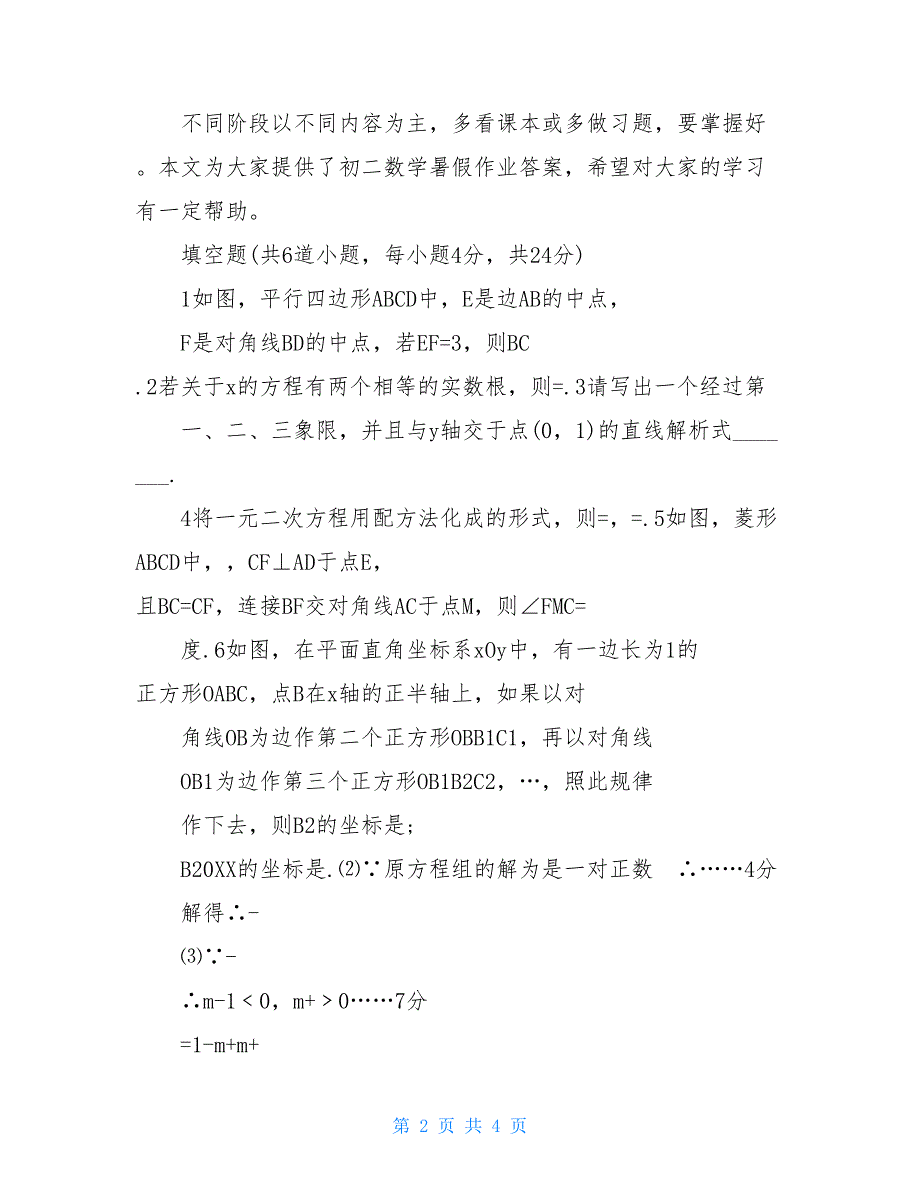 不同阶段以不同内容为主，多看课本或多做习题，要掌握好
。本文为大家提供了初二数学暑假作业答案，希望对大家的学习
有一定帮助。
填空题(共6道小题，每小题4分，共24分)
1如图，平行四边形ABCD中，E是边AB的中点，
F是对角线BD的中点，若EF=3，则BC
.2若关于x的方程有两个相等的实数根，则=.3请写出一个经过第
一、二、三象限，并且与y轴交于点(0，1)的直线解析式_____
___.
4将一元二次方程用配方法化成的形式，则=，=.5如图，菱形
ABCD中，，CF⊥AD于点E，
且BC=CF，连接BF交对角线AC于点M，则∠FMC=
度.6如图，在平面直角坐标系xOy中，有一边长为1的
正方形OABC，点B在x轴的正半轴上，如果以对
角线OB为边作第二个正方形OBB1C1，再以对角线
OB1为边作第三个正方形OB1B2C2，…，照此规律
作下去，则B2的坐标是;
B20XX的坐标是.⑵∵原方程组的解为是一对正数 ∴……4分
解得∴-
⑶∵-
∴m-1﹤0，m+﹥0……7分
=1-m+m+
第 2 页 共 4 页